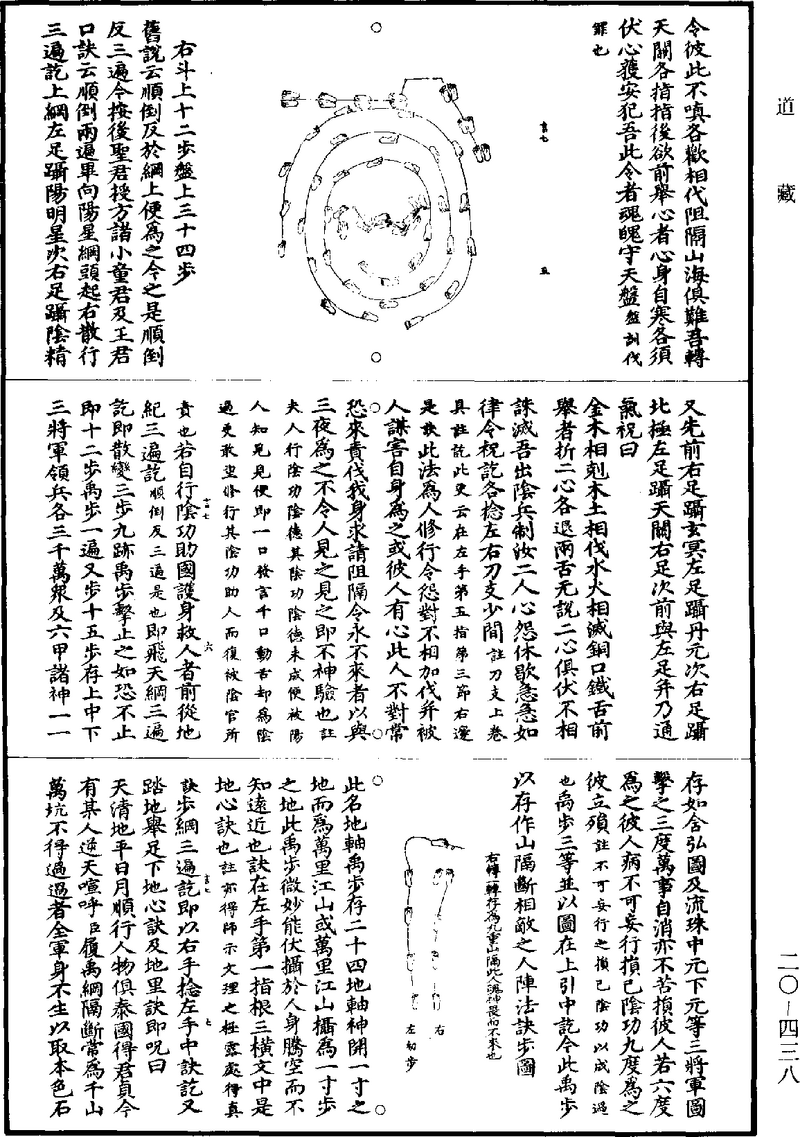 道藏
二〇—四三八
令彼此不嗔各歡相代阻隔山海俱難吾轉
天關各指指後欲前舉心者心身自寒各須
伏心獲安犯吾此令者魂魄守天盤盤訣伐
罪也
言七
五
右斗上十二步盤上三十四步
舊說云順倒反於綱上便為之令之是順倒
反三遍今按後聖君授方諸小童君及王君
口訣云順倒兩遍畢向陽星綱頭起右散行
三遍訖上綱左足躡陽明星次右足躡陰精
又先前右足躡玄冥左足躡丹元次右足躡
北極左足躡天關右足次前與左足并乃通
氣祝曰
金木相剋木土相伐水火相滅銅口鐵舌前
舉者折二心各退兩舌无說二心俱伏不相
誅滅吾出陰兵制汝二人心怨休歇急急如
律令祝訖各捻左右刀支少間註刀支上卷
具註訖此更云在左手第五指第三節右邊
是訣此法為人修行令怨對不相加伐并被
人謀害自身為之或彼人有心此人不對常
恐來責伐我身求請阻隔令永不來者以與
三夜為之不令人見之見之即不神驗也註
夫人行陰功陰德其陰功陰德未成便被陽
人知見見便即一口發言千口動舌却為陰
過更敢重修行其陰功助人而復被陰官所
責也若自行陰功助國護身救人者前從地
紀三遍訖順倒反三遍是也即飛天綱三遍
訖即散變三步九跡禹步擊止之如恐不止
即十二步禹步一遍又步十五步存上中下
三將軍領兵各三千萬衆及六甲諸神一一
六
存如舍弘圖及流珠中元下元等三將軍圖
擊之三度萬事自消亦不苦損彼人若六度
為之彼人病不可妄行損己陰功九度為之
彼立殞註不可妄行之損己陰功以成陰過
也禹步三等並以圖在上引中訖今此禹步
以存作山隔斷相敵之人陣法訣步圖
右轉一轉存為九重山隔此人魂神畏而不來也
右
左初步
此名地軸禹步存二十四地軸神開一寸之
地而為萬里江山或萬里江山攝為一寸步
之地此禹步微妙能伏攝於人身騰空而不
知遠近也訣在左手第一指根三橫文中是
地心訣也註亦得師示文理之極露處得真
訣步綱三遍訖即以右手捻左手中訣訖又
踏地舉足下地心訣及地里訣即呪曰
天清地平日月順行人物俱泰國得君貞今
有某人逆天喧呼臣履禹綱隔斷常為千山
萬坑不得過過者全軍身不生以取本色石
言七
七